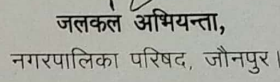 जलकल अभियन्ता,
नगरपालिका परिषद, जौनपुर।